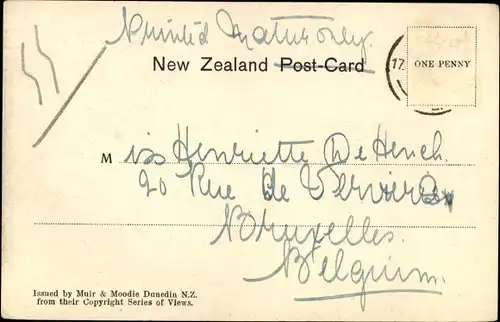 Printed Matter only.
New Zealand Post-Card
ONE PENNY
17
Miss Henriette De Hench.
20 Rue de Verviers
Bruxelles.
Belgium.
Issued by Muir & Moodie Dunedin N.Z.
from their Copyright Series of Views.